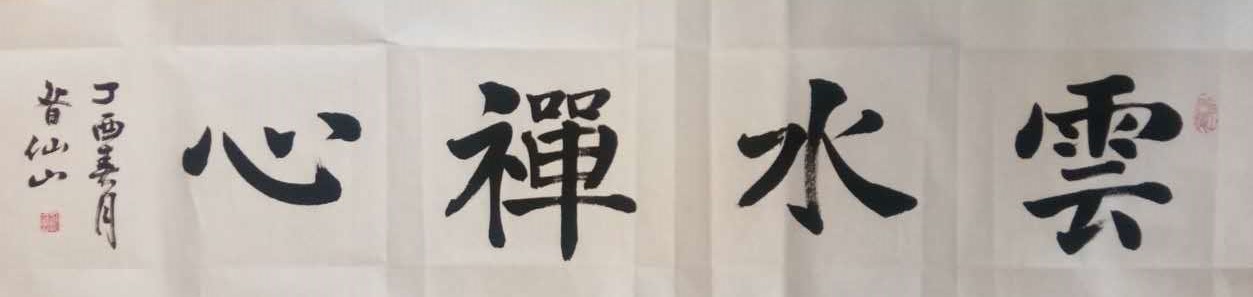 雲水禪心
丁酉春月
昔仙山